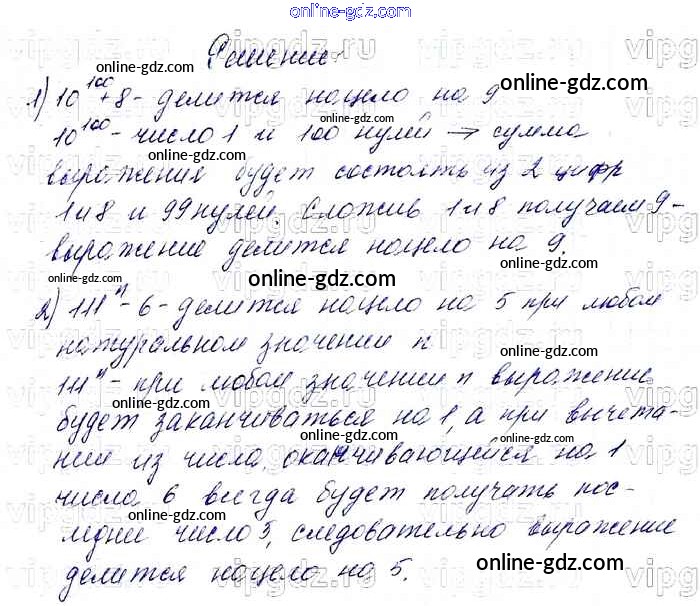 online-gdz.com
Решение.
online-gdz.com online-gdz.com
1) 10^100 + 8 - делится нацело на 9
10^100 - число 1 и 100 нулей → сумма
online-gdz.com online-gdz.com
выражения будет состоять из 2 цифр
1 и 8 и 99 нулей. Сложив 1 и 8 получаем 9 -
выражение делится нацело на 9.
online-gdz.com online-gdz.com online-gdz.com
2) 111^n - 6 - делится нацело на 5 при любом
натуральном значении n
online-gdz.com online-gdz.com
111^n - при любом значении n выражение
будет заканчиваться на 1, а при вычета-
online-gdz.com online-gdz.com
нии из числа, оканчивающейся на 1
online-gdz.com online-gdz.com
числа 6 всегда будет получать пос-
леднее число 5, следовательно выражение
online-gdz.com online-gdz.com
делится нацело на 5.